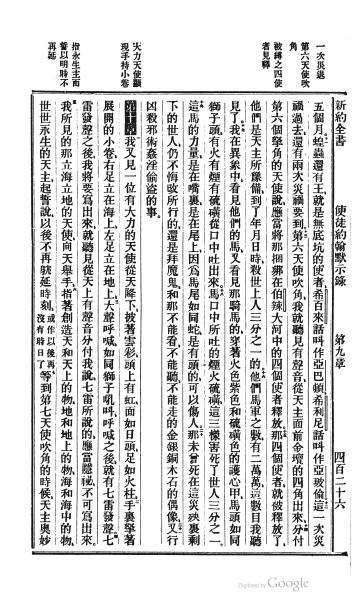 新約全書 使徒約翰默示錄 第九章 四百二十六
一次災退
第六天使吹
角
被縛之四使
者見釋
有力天使顯
現手持小卷
指永生主而
誓以明時不
再延
五個月蝗蟲還有王就是無底坑的使者希伯來話叫作亞巴頓希利尼話叫作亞玻倫這一次災
禍過去還有兩次災禍要到第六天使吹角我就聽見有聲音從天主面前金壇的四角出來分付
第六個拏角的天使說應當將那捆綁在伯辣大河中的四個使者釋放那四個使者就被釋放了
他們是天主所豫備到了年月日時殺世上人三分之一的他們馬軍之數有二萬萬這數目我聽
見了我在異象中看見他們的馬又看見那騎馬的穿著火色紫色和硫磺色的護心甲馬頭如同
獅子頭有火有煙有硫磺從口中吐出來馬口中所吐的煙火硫磺這三樣害死了世人三分之一
這馬的力量是在嘴裏是在尾上因為馬尾如同蛇是有頭的可以傷人那未曾死在這災殃裏剩
下的世人仍不悔改所行的還是拜魔鬼和那不能看不能聽不能走的金銀銅木石的偶像又行
凶殺邪術姦淫偷盜的事
第十章我又見一位有大力的天使從天降下披著雲彩頭上有虹面如日頭足如火柱手裏拏著
展開的小卷右足立在海上左足立在地上大聲呼喊如同獅子吼叫呼喊之後就有七雷發聲七
雷發聲之後我將要寫出來就聽見從天上有聲音分付我說七雷所說的應當隱祕不可寫出來
我所見的那立海立地的天使向天舉手指著創造天和天上的物地和地上的物海和海中的物
世世永生的天主起誓說以後不再躭延時刻或作以後再沒有時日了等到第七天使吹角的時候天主奧妙
Digitized by Google